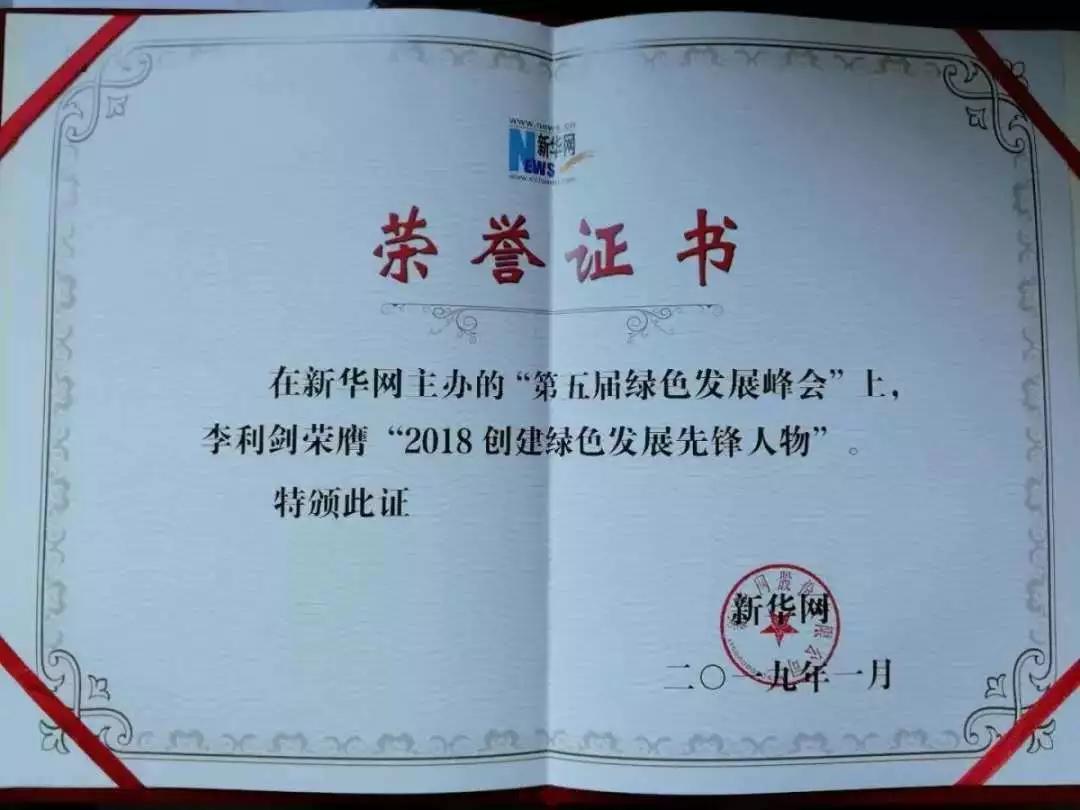 www.news.cn
新华网
NEWS
荣誉证书
在新华网主办的“第五届绿色发展峰会”上，
李利剑荣膺“2018 创建绿色发展先锋人物”。
特颁此证
新华网
二〇一九年一月